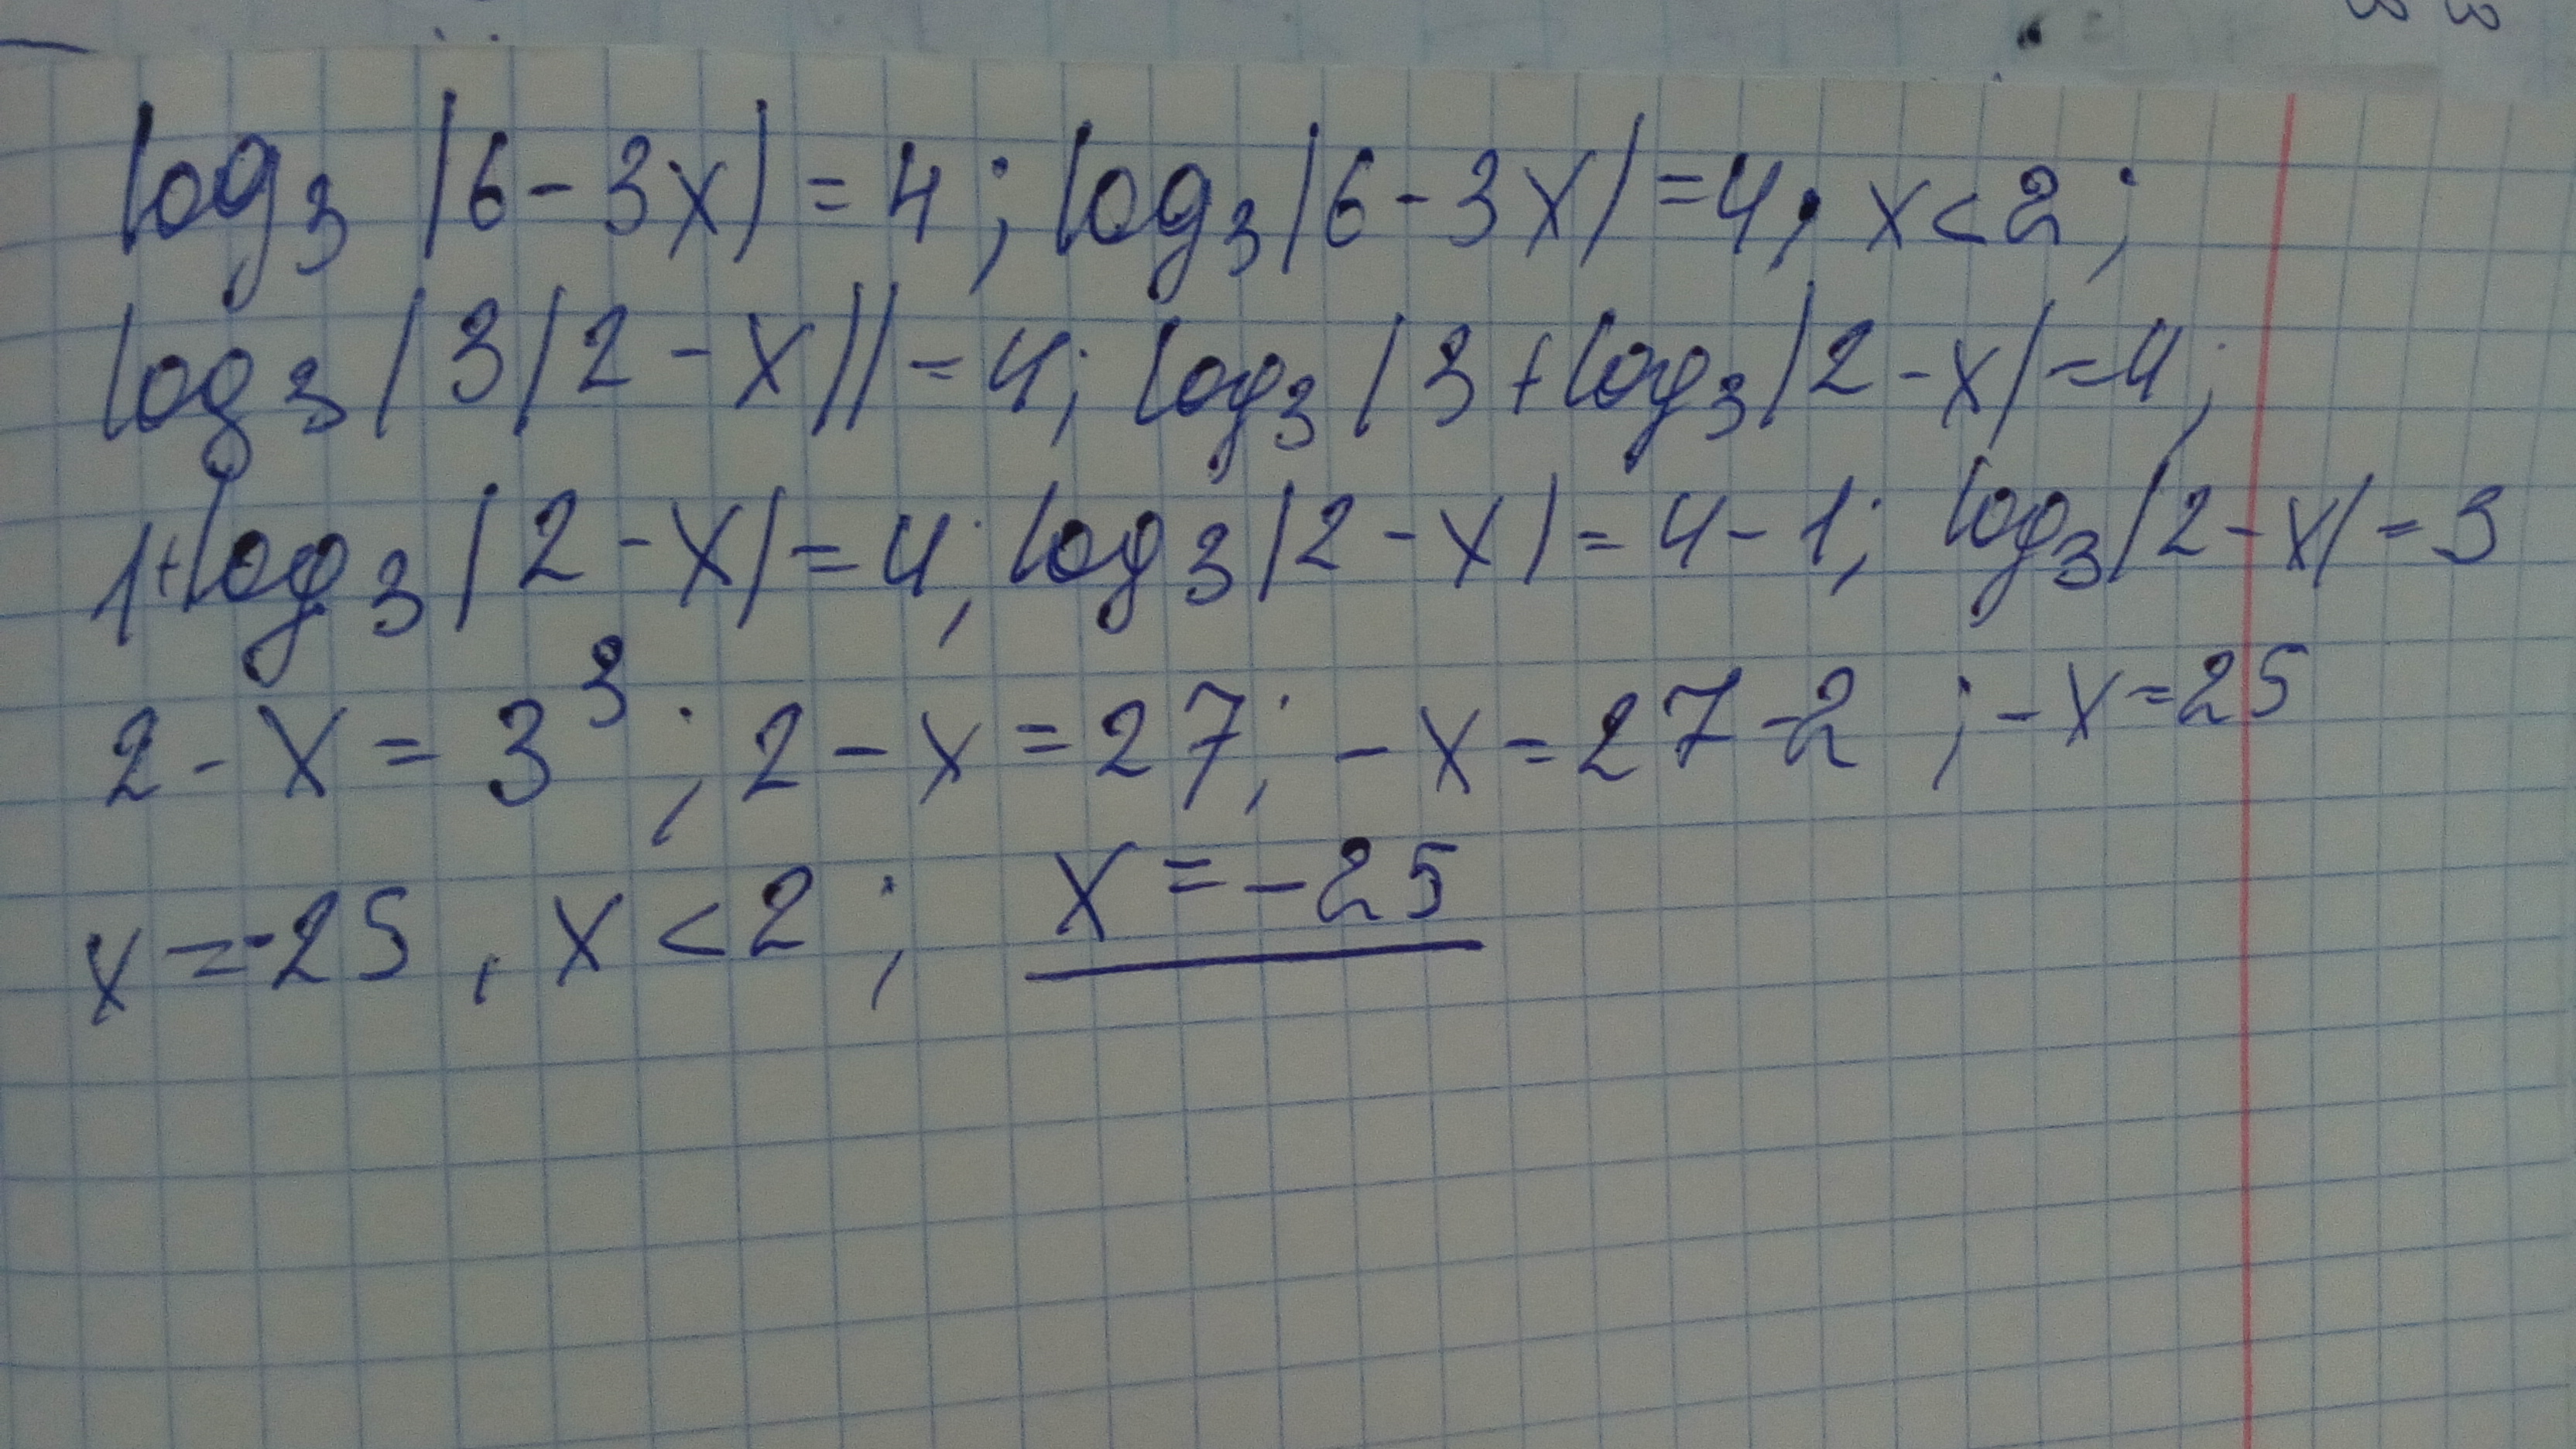 log₃ |6-3x|=4; log₃|6-3x|=4, x<2;
log₃|3|2-x||=4; log₃|3+log₃|2-x|=4;
1+log₃|2-x|=4; log₃|2-x|=4-1; log₃|2-x|=3
2-x=3³; 2-x=27; -x=27-2; -x=25
x=-25, x<2; x=-25